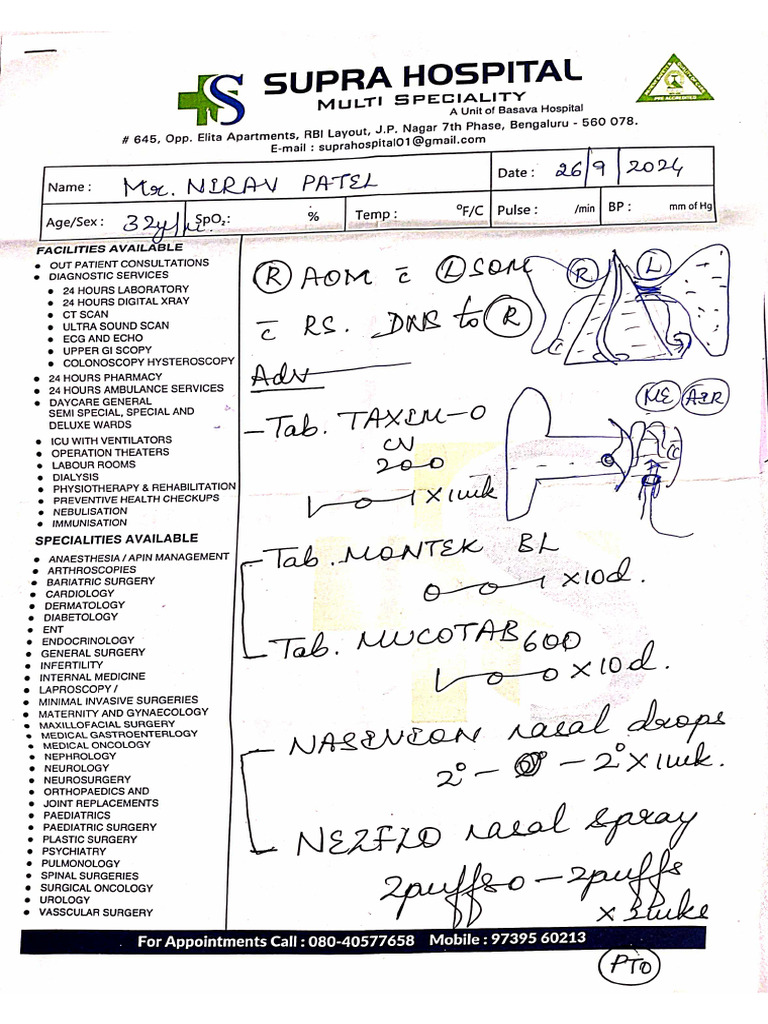 SUPRA HOSPITAL
MULTI SPECIALITY
A Unit of Basava Hospital
# 645, Opp. Elita Apartments, RBI Layout, J.P. Nagar 7th Phase, Bengaluru - 560 078.
E-mail : suprahospital01@gmail.com
Name : Mr. NIRAV PATEL Date : 26/9/2024
Age/Sex : 32y/M SpO₂: % Temp : °F/C Pulse : /min BP : mm of Hg
FACILITIES AVAILABLE
• OUT PATIENT CONSULTATIONS
• DIAGNOSTIC SERVICES
• 24 HOURS LABORATORY
• 24 HOURS DIGITAL XRAY
• CT SCAN
• ULTRA SOUND SCAN
• ECG AND ECHO
• UPPER GI SCOPY
• COLONOSCOPY HYSTEROSCOPY
• 24 HOURS PHARMACY
• 24 HOURS AMBULANCE SERVICES
• DAYCARE GENERAL
SEMI SPECIAL, SPECIAL AND
DELUXE WARDS
• ICU WITH VENTILATORS
• OPERATION THEATERS
• LABOUR ROOMS
• DIALYSIS
• PHYSIOTHERAPY & REHABILITATION
• PREVENTIVE HEALTH CHECKUPS
• NEBULISATION
• IMMUNISATION
SPECIALITIES AVAILABLE
• ANAESTHESIA / APIN MANAGEMENT
• ARTHROSCOPIES
• BARIATRIC SURGERY
• CARDIOLOGY
• DERMATOLOGY
• DIABETOLOGY
• ENT
• ENDOCRINOLOGY
• GENERAL SURGERY
• INFERTILITY
• INTERNAL MEDICINE
• LAPROSCOPY /
• MINIMAL INVASIVE SURGERIES
• MATERNITY AND GYNAECOLOGY
• MAXILLOFACIAL SURGERY
• MEDICAL GASTROENTERLOGY
• MEDICAL ONCOLOGY
• NEPHROLOGY
• NEUROLOGY
• NEUROSURGERY
• ORTHOPAEDICS AND
• JOINT REPLACEMENTS
• PAEDIATRICS
• PAEDIATRIC SURGERY
• PLASTIC SURGERY
• PSYCHIATRY
• PULMONOLOGY
• SPINAL SURGERIES
• SURGICAL ONCOLOGY
• UROLOGY
• VASSCULAR SURGERY
R AOM c̄ L SOM
c̄ RS. DNS to R
R L
Adv
ME AIR
- Tab. TAXIM-O
CV
200
1-0-1 x 1wk
Tab. MONTEK BL
0-0-1 x 10d.
Tab. MUCOTAB 600
1-0-0 x 10d.
NASIVION nasal drops
2°- 0 - 2° x 1wk.
NEZFLO nasal spray
2puffs 0 - 2puffs
x 3wks
For Appointments Call : 080-40577658 Mobile : 97395 60213
PTO